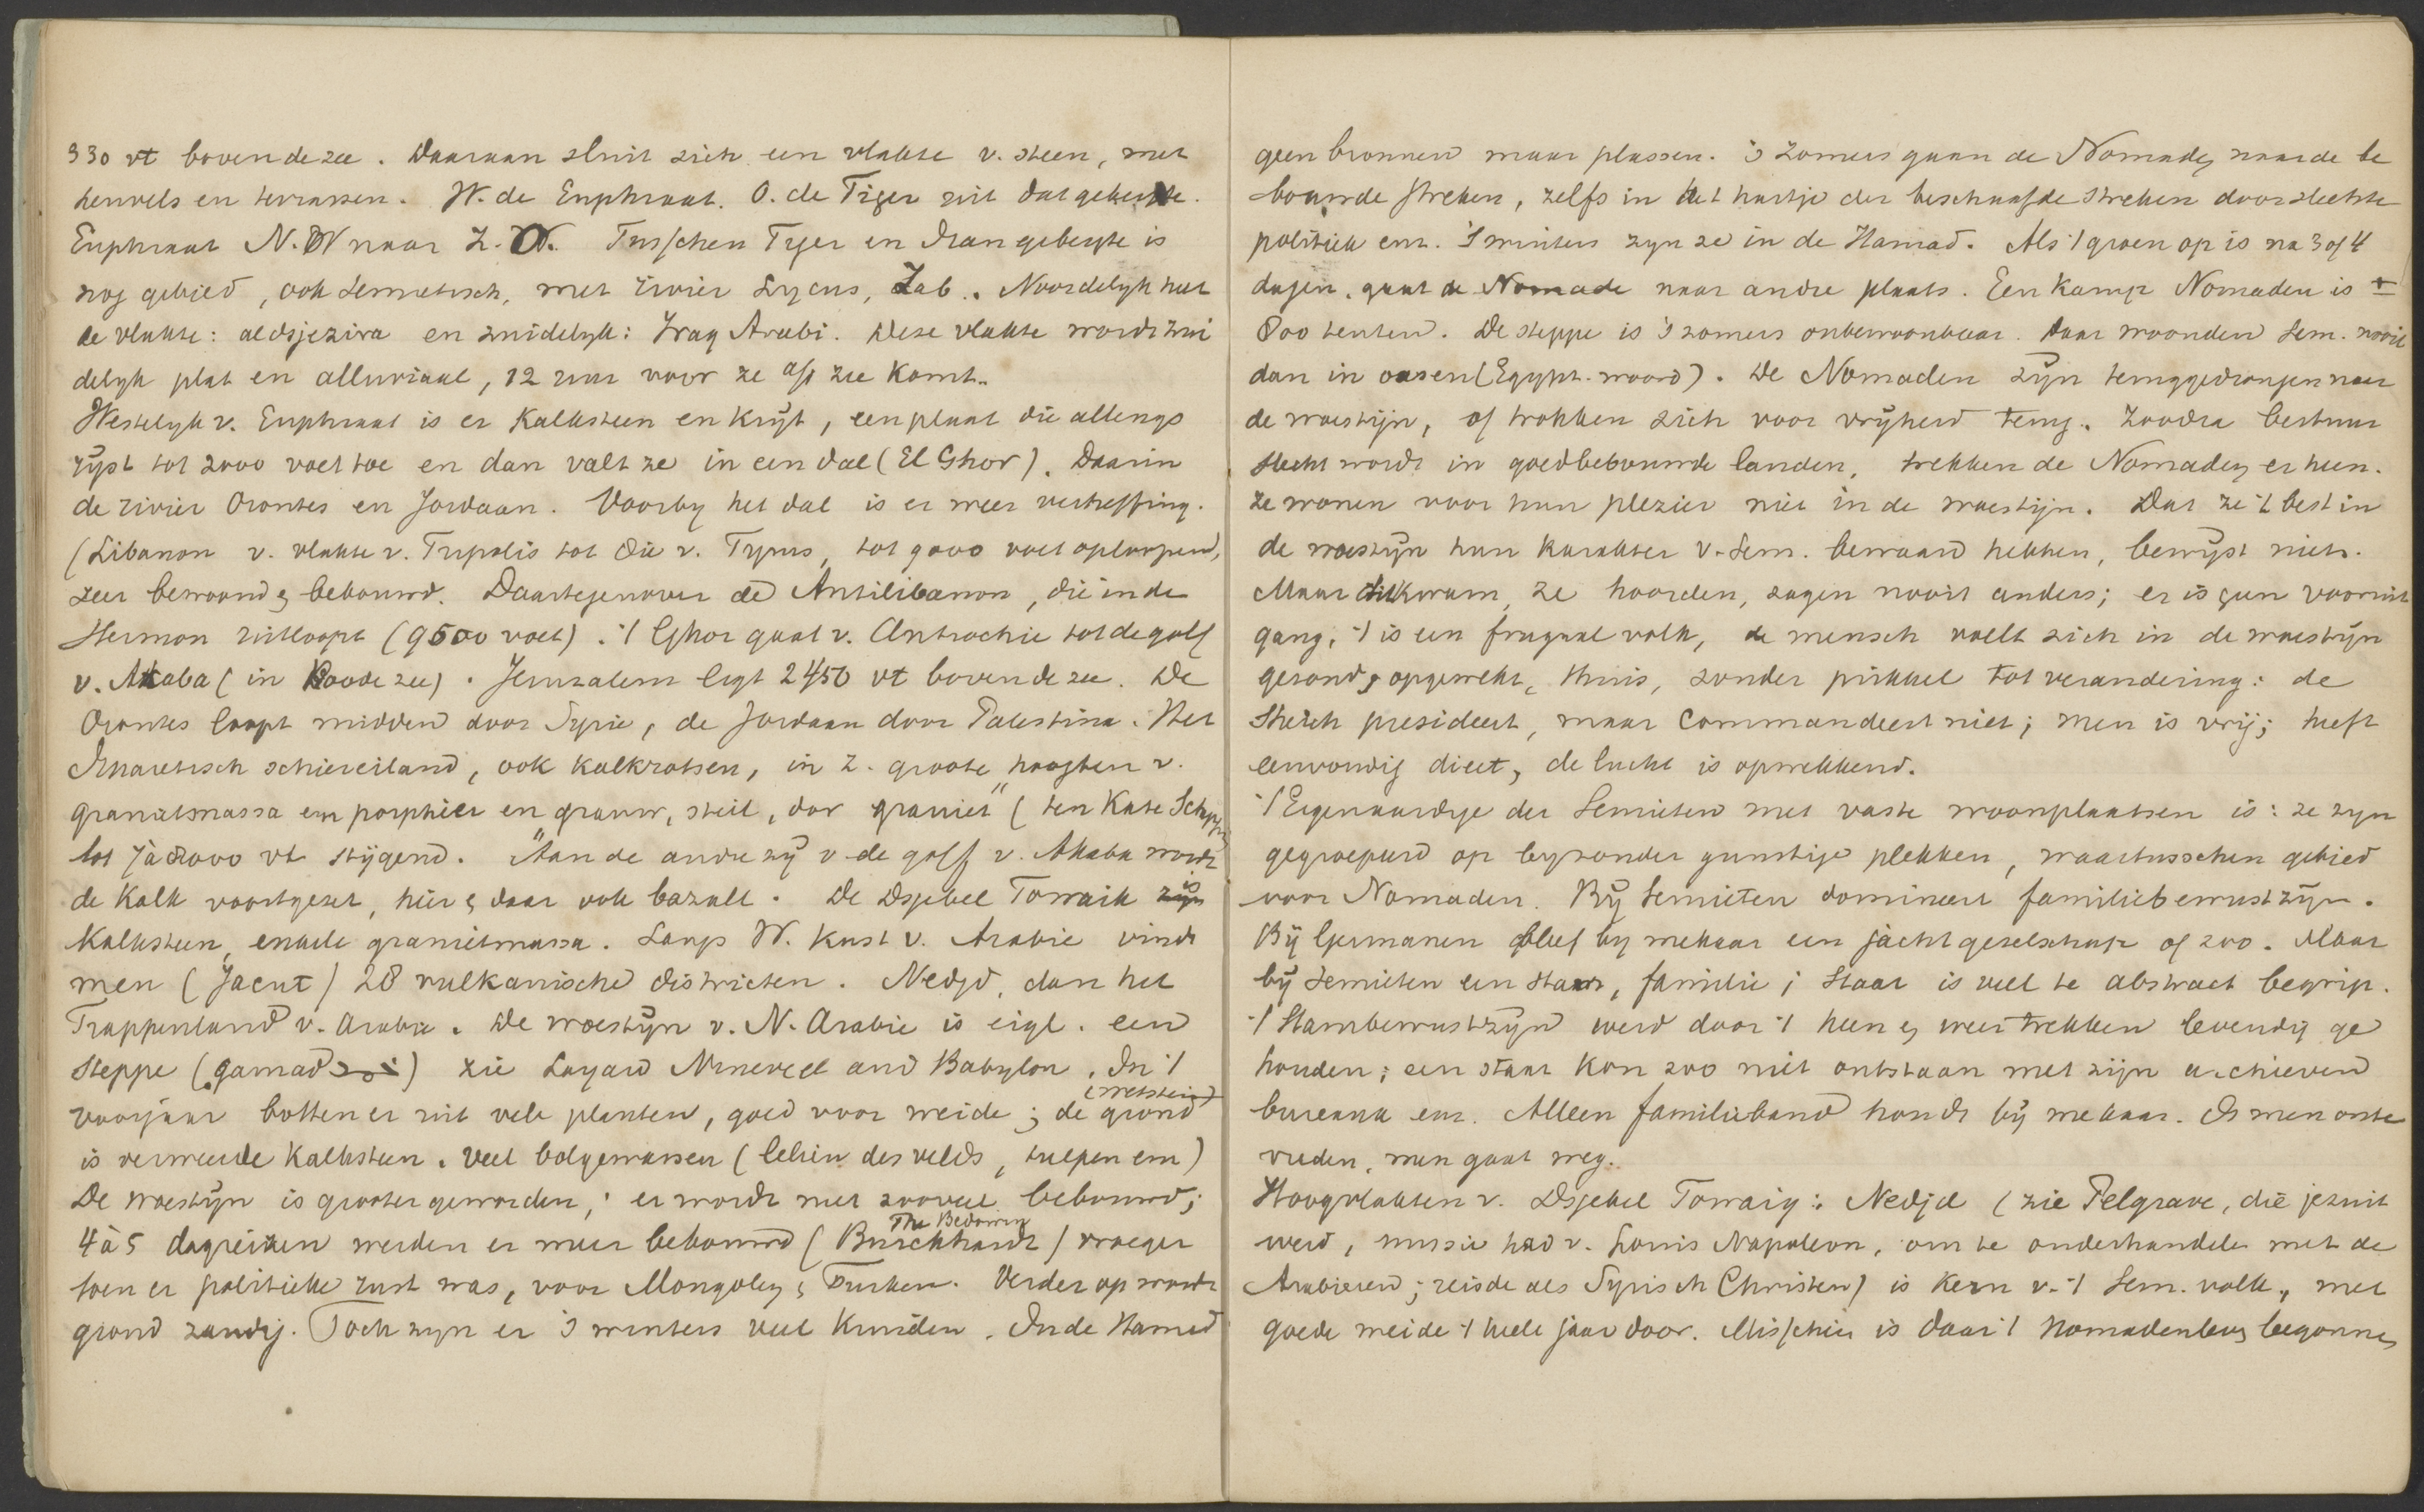 330 vt boven de zee. Daaraan sluit zich een vlakte v. steen, met
heuvels en terrassen. W. de Euphraat. O. de Tiger uit dat gebergte.
Euphraat N.W naar Z.O. Tusschen Tyer en Irangebergte is
nog gebied, ook Semietisch, met rivier Lycus, Zab. Noordelyk heet
de vlakte: aldsjezira en zuidelyk: Iraq Arabi. Deze vlakte wordt zui
delyk plat en alluviaal, 12 uur voor ze a/d zee komt.
Westelyk v. Euphraat is er Kalksteen en Krijt, een plaat die allengs
rijst tot 2000 voet toe en dan valt ze in een dal (El Ghor). Daarin
de rivier Orontes en Jordaan. Voorby het dal is er weer verheffing.
(Libanon v. vlakte v. Tripolis tot die v. Tyrus, tot 9000 voet oploopend,
zeer bewoond & bebouwd. Daartegenover de Antilibanon, die in de
Hermon uitloopt (9500 voet). 't Ghor gaat v. Antiochie tot de golf
v. Akaba (in Roode zee). Jeruzalem ligt 2450 vt boven de zee. De
Orontes loopt midden door Syrie, de Jordaan door Palestina. Het
Sinaietisch schiereiland, ook kalkrotsen, in Z. groote hoogten v.
granietmassa en porphier en grauw, steil, dor graniet" (ten Kate
tot 7 à 8000 vt stijgend. Aan de andre zij v de golf v. Akaba wordt
de Kalk voortgezet, hier & daar ook bazalt. De Dsjebel Towaik is
Kalksteen, enkele granietmassa. Langs W. Kust v. Arabie vindt
men (Jacut) 28 vulkanische districten. Nedjd, dan het
Trappenland v. Arabie. De woestijn v. N. Arabie is eigl. een
Steppe (Hamad) zie Layard Nineveh and Babylon. In 't
(Wetstein)
voorjaar botten er uit vele planten, goed voor weide; de grond
is verweerde Kalksteen. Veel bolgewassen (leliën des velds, tulpen enz)
De woestijn is grooter geworden; er wordt niet zooveel bebouwd;
The Bedowin
4 à 5 dagreizen werden er meer bebouwd (Burckhardt) vroeger
toen er politieke rust was, voor Mongolen & Turken. Verder op wordt
grond zandig. Toch zyn er 's winters veel Kruiden. In de Hamad
geen bronnen maar plassen. 's Zomers gaan de Nomaden naar de be
bouwde streken, zelfs in het hartje der beschaafde streken door slechte
politiek enz. 's winters zyn ze in de Hamad. Als 't groen op is na 3 of 4
dagen, gaat de Nomade naar andre plaats. Een Kamp Nomaden is ±
800 tenten. De steppe is 's zomers onbewoonbaar. Daar woonden Sem. nooit
dan in oasen (Egypt. woord). De Nomaden zijn teruggedrongen naar
de woestijn, of trokken zich voor vryheid terug. Zoodra bestuur
slecht wordt in goedbebouwde landen, trekken de Nomaden er heen.
Ze wonen voor hun plezier niet in de woestijn. Dat ze 't best in
de woestijn hun Karakter v. Sem. bewaard hebben, bewijst niets.
Maar dit kwam, ze hoorden, zagen nooit anders; er is geen vooruit
gang, 't is een frugaal volk, de mensch voelt zich in de woestijn
gezond, opgewekt, thuis, zonder prikkel tot verandering: de
Sheich presideert, maar commandeert niet; men is vrij; heeft
eenvoudig dieet, de lucht is opwekkend.
't Eigenaardige der Semieten met vaste woonplaatsen is: ze zyn
gegroepeerd op byzonder gunstige plekken, waartusschen gebied
voor Nomaden. Bij Semieten domineert familiebewustzijn.
Bij Germanen bleef by mekaar een jachtgezelschap of zoo. Maar
bij Semieten een stam, familie; Staat is veel te abstract begrip.
't Stambewustzijn werd door 't heen & weertrekken levendig ge
houden; een staat Kon zoo niet ontstaan met zijn archieven
bureaux enz. Alleen familieband houdt bij mekaar. Is men onte
vreden, men gaat weg.
Hoogvlakten v. Dsjebel Towaiq: Nedjd (zie Pelgrave, die jezuit
werd, missie had v. Louis Napoleon, om te onderhandelen met de
Arabieren; reisde als Syrisch Christen) is Kern v. 't Sem. volk, met
goede weide 't heele jaar door. Misschien is daar 't Nomadenleven begonnen